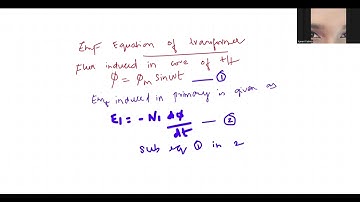 Emf Equation of transformer
flux induced in core of t/f
ϕ = ϕm sinωt — ①
Emf induced in primary is given as
E1 = -N1 dϕ/dt — ②
sub eq ① in 2